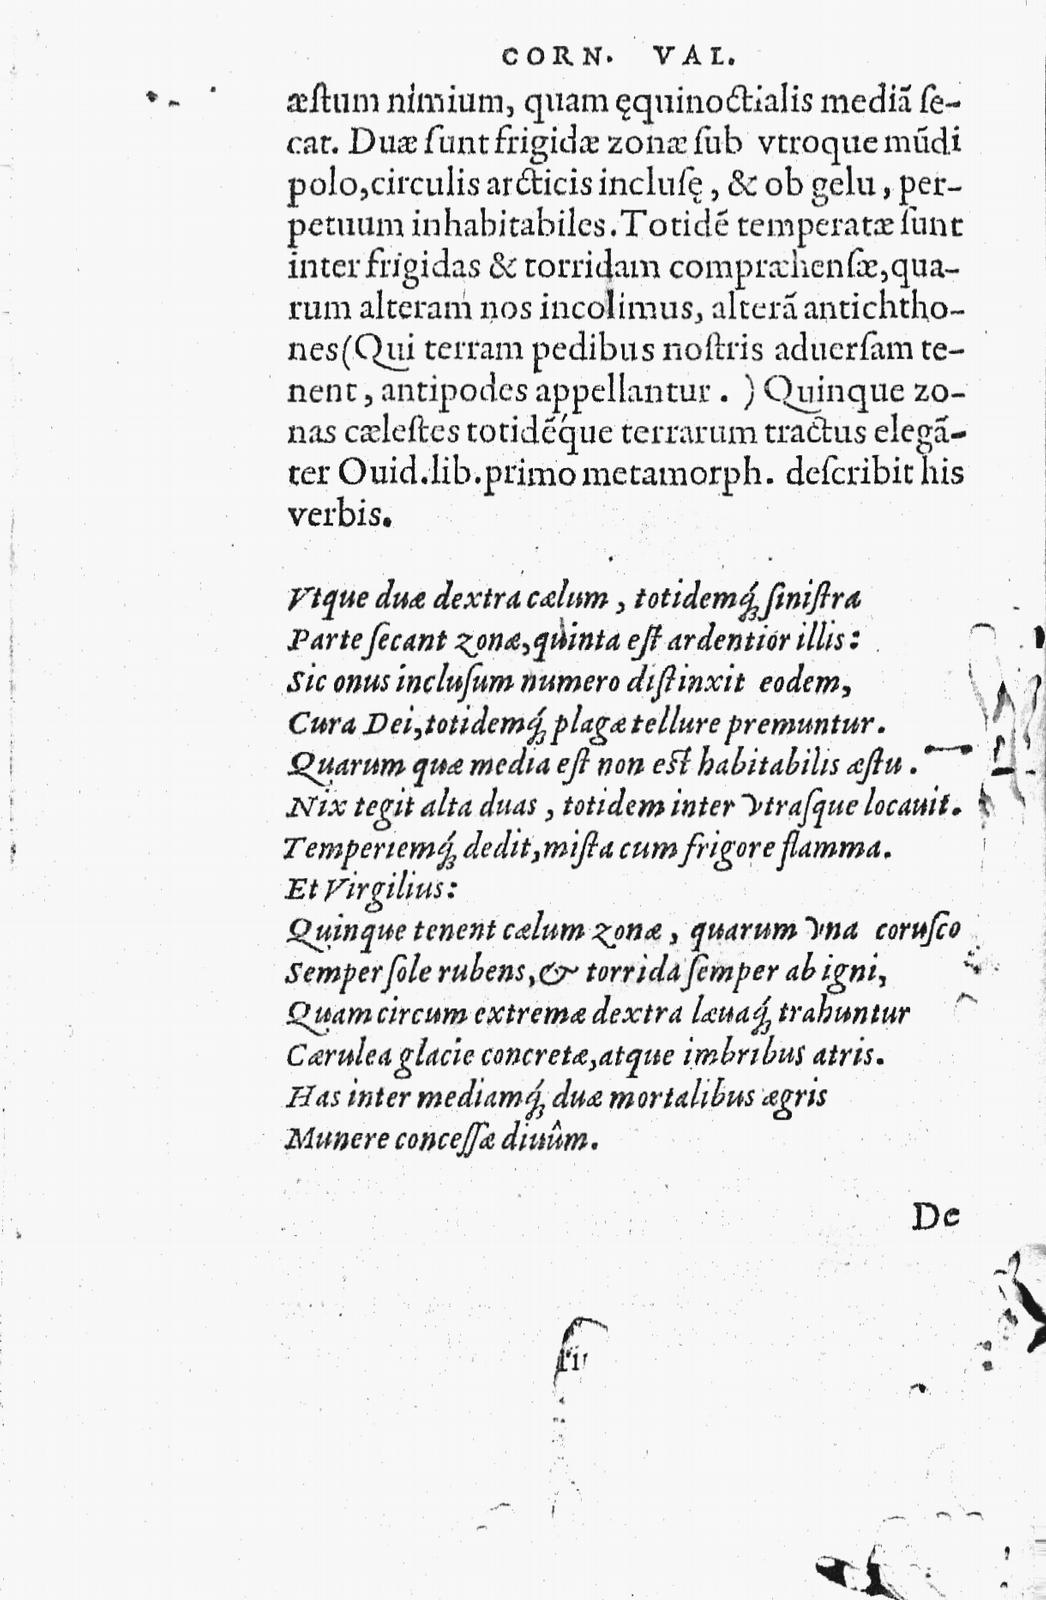 CORN. VAL.
æſtum nimium, quam ęquinoctialis mediã ſe-
cat. Duæ ſunt frigidæ zonæ ſub vtroque mũdi
polo, circulis arcticis incluſę, & ob gelu, per-
petuum inhabitabiles. Totidẽ temperatæ ſunt
inter frigidas & torridam compræhenſæ, qua-
rum alteram nos incolimus, alterã antichtho-
nes (Qui terram pedibus noſtris aduerſam te-
nent, antipodes appellantur. ) Quinque zo-
nas cæleſtes totidẽq́ue terrarum tractus elegã-
ter Ouid. lib. primo metamorph. deſcribit his
verbis.
Vtque duæ dextra cælum, totidemq́; ſiniſtra
Parte ſecant zonæ, quinta eſt ardentior illis:
Sic onus incluſum numero diſtinxit eodem,
Cura Dei, totidemq́; plagæ tellure premuntur.
Quarum quæ media eſt non eſt habitabilis æſtu.
Nix tegit alta duas, totidem inter vtraſque locauit.
Temperiemq́; dedit, miſta cum frigore flamma.
Et Virgilius:
Quinque tenent cælum zonæ, quarum vna coruſco
Semper ſole rubens, & torrida ſemper ab igni,
Quam circum extremæ dextra læuaq́; trahuntur
Cærulea glacie concretæ, atque imbribus atris.
Has inter mediamq́; duæ mortalibus ægris
Munere conceſſæ diuûm.
De